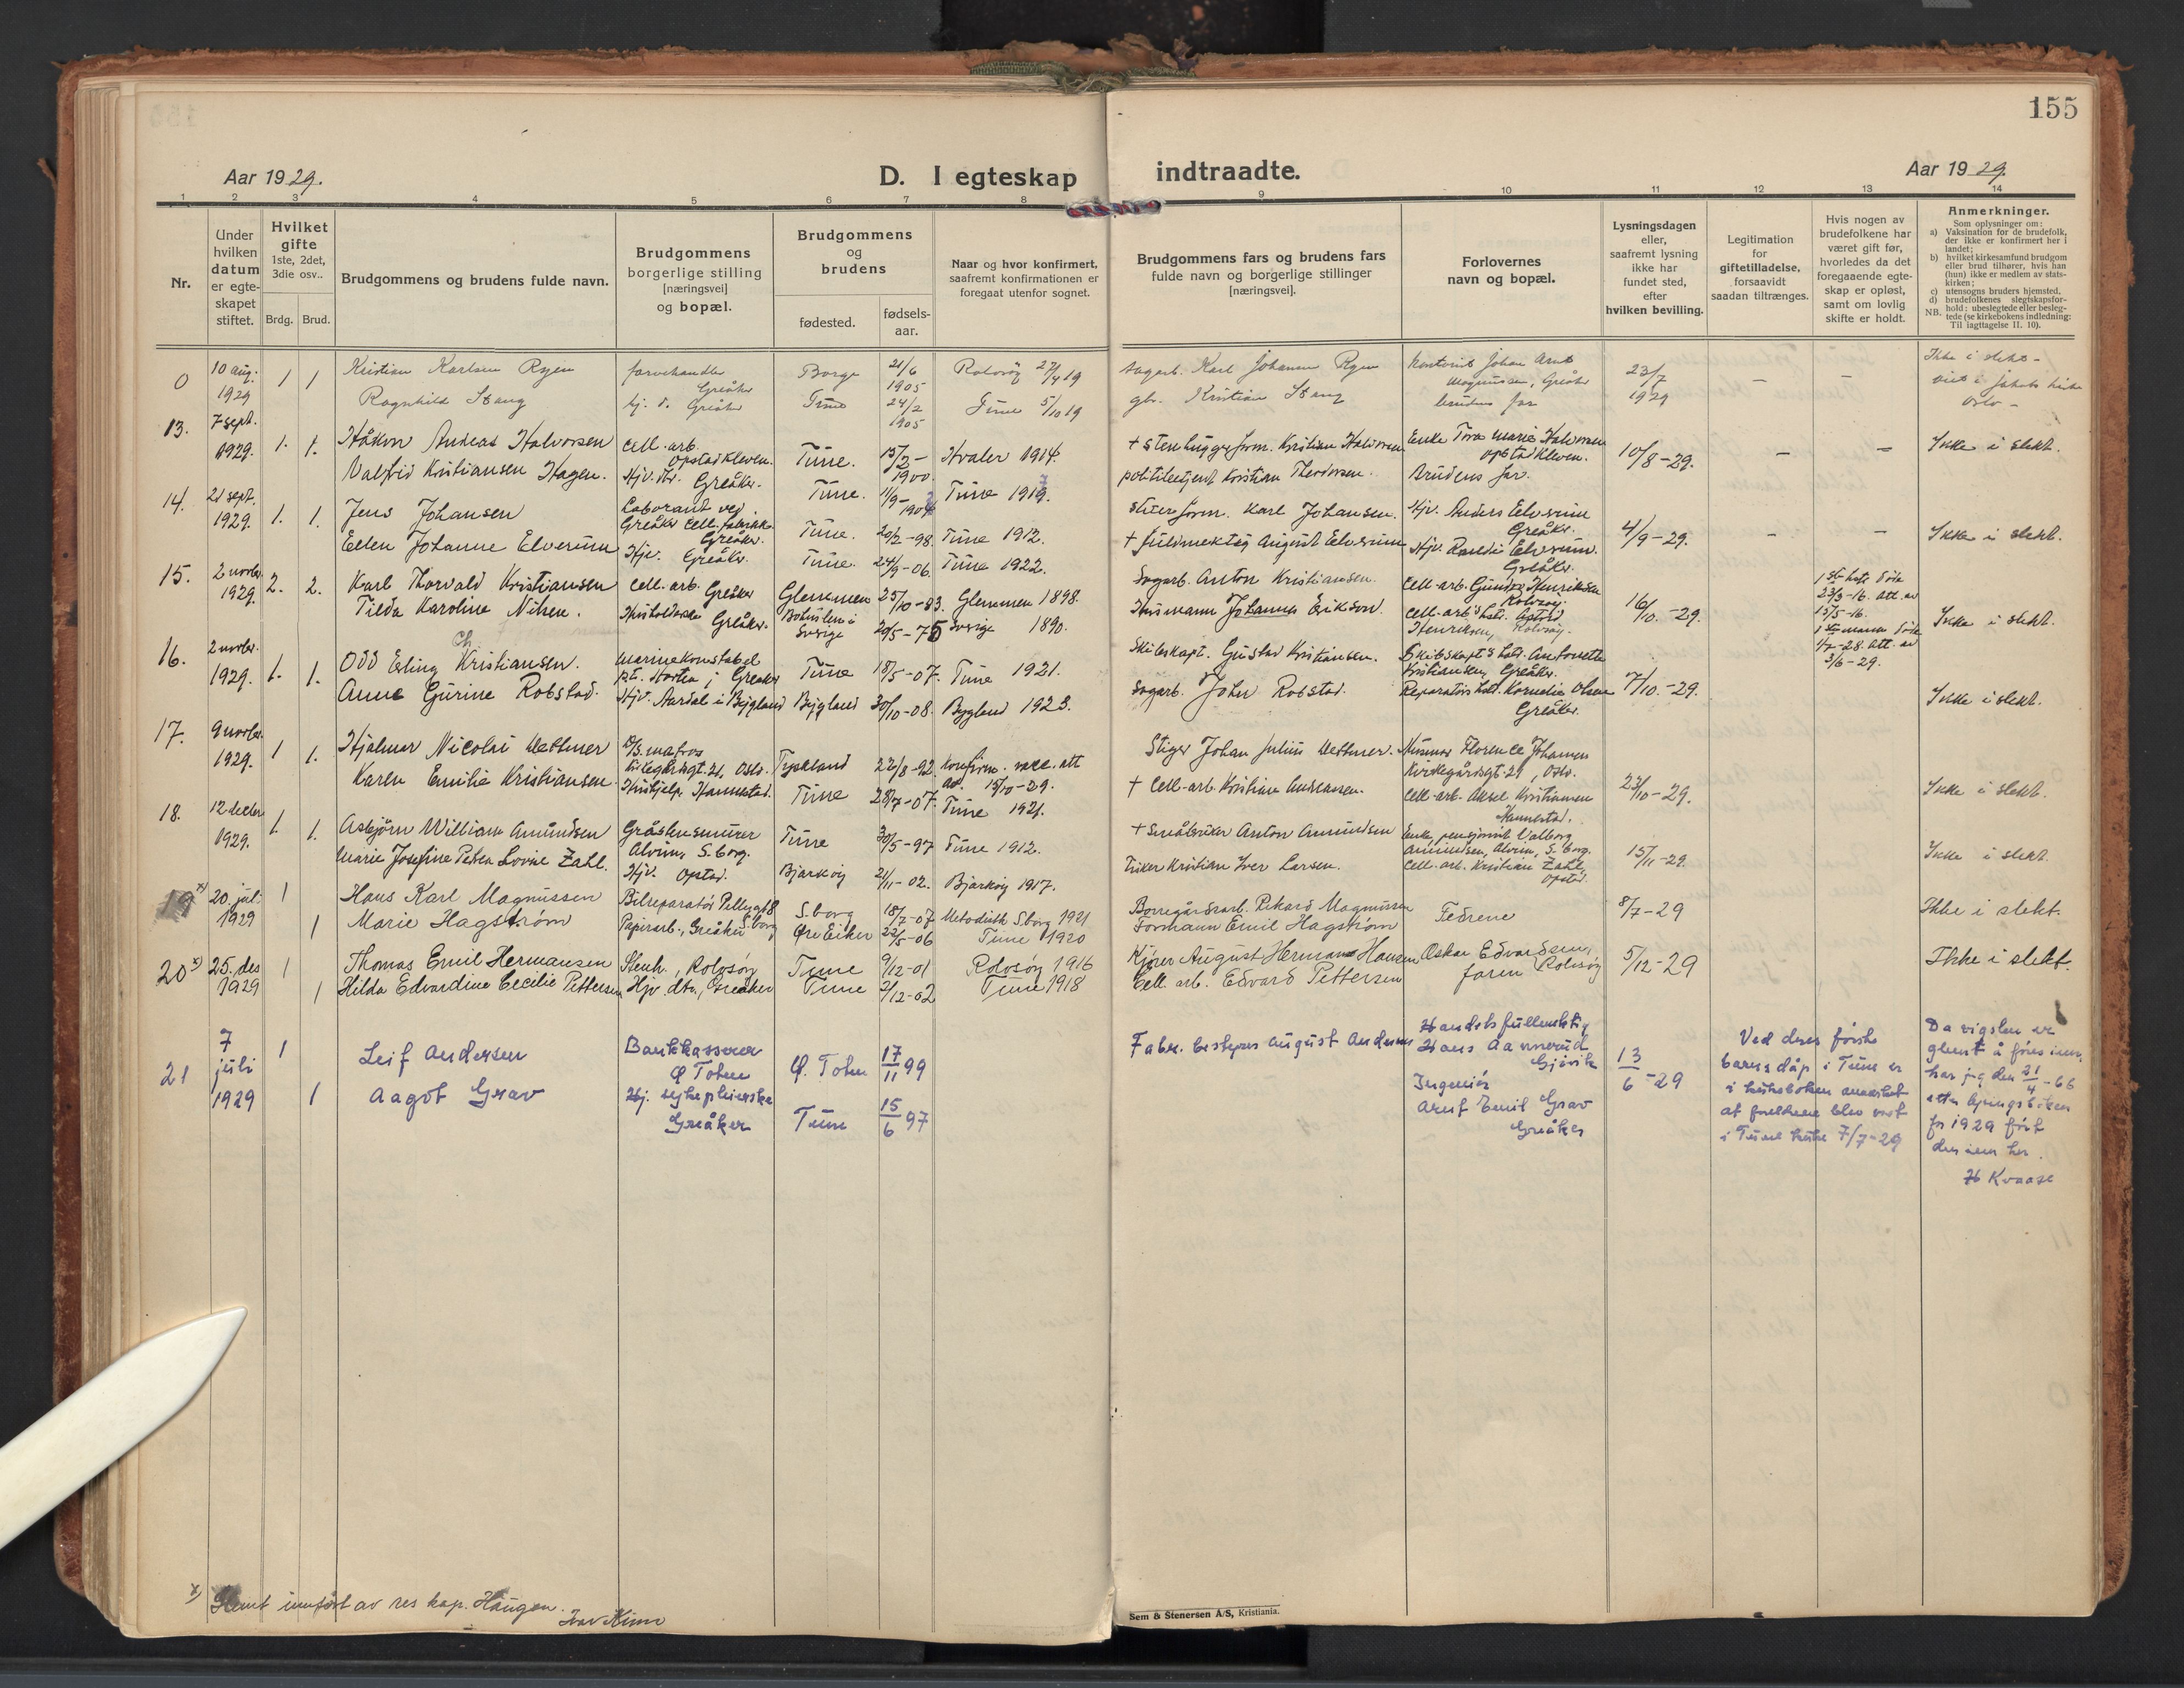 155
Aar 1929.
D. I egteskap indtraadte.
Aar 1929.
1 2 3 4 5 6 7 8 9 10 11 12 13 14
Nr.
Under hvilken datum er egte-skapet stiftet.
Hvilket gifte 1ste, 2det, 3die osv..
Brdg. Brud.
Brudgommens og brudens fulde navn.
Brudgommens borgerlige stilling [næringsvei] og bopæl.
Brudgommens og brudens
fødested.
fødsels-aar.
Naar og hvor konfirmert, saafremt konfirmationen er foregaat utenfor sognet.
Brudgommens fars og brudens fars fulde navn og borgerlige stillinger [næringsvei].
Forlovernes navn og bopæl.
Lysningsdagen eller, saafremt lysning ikke har fundet sted, efter hvilken bevilling.
Legitimation for giftetilladelse, forsaavidt saadan tiltrænges.
Hvis nogen av brudefolkene har været gift før, hvorledes da det foregaaende egte-skap er opløst, samt om lovlig skifte er holdt.
Anmerkninger.
Som oplysninger om:
a) Vaksination for de brudefolk, der ikke er konfirmert her i landet;
b) hvilket kirkesamfund brudgom eller brud tilhører, hvis han (hun) ikke er medlem av stats-kirken;
c) utensogns bruders hjemsted,
d) brudefolkenes slegtskapsfor-hold: ubeslegtede eller besleg-tede (se kirkebokens indledning: Til iagttagelse II. 10).
NB.
0 10 aug. 1 1 Kristian Karlsen Ryen farvehandler Greåker Borge 21/6 1905 Rolvsøy 27/4 19 sagarb. Karl Johannes Ryen Kontorist Johan Arnt Magnussen, Greåker 23/7 1929 – – Ikke i slekt –
1929 Ragnhild Stang hj. d. Greåker Tune 24/2 1905 Tune 5/10 19 gbr. Kristian Stang brudens far viet i Jakobs kirke Oslo –
13. 7 sept. 1929. 1. 1. Håkon Andreas Halvorsen cell.-arb. Opstadkleven. Tune. 15/2 – 1900. Hvaler 1914. + Stenhuggerform. Kristian Halvorsen Enke Tora Marie Halvorsen Opstadkleven. 10/8-29. – – Ikke i slekt.
Valfrid Kristiansen Hagen. Hjv. Greåker. Tune. 11/9 – Tune politibetjent Kristian Theodorsen. Brudens far.
14. 21 sept. 1929. 1. 1. Jens Johansen Laborant ved Greåker Cell. fabrikk Greåker. Tune. 20/2-98. Tune 1912. Karl Johansen. Hjv. Anders Elverum Greåker. 4/9-29. – – Ikke i slekt.
Ellen Johanne Elverum Hjv. Greåker. Tune. 24/9-06. Tune 1922. + fuldmektig August Elverum Hjv. Elverum. Greåker.
15. 2 novbr. 1929. 2. 2. Karl Thorvald Kristiansen cell. arb. Greåker Glemmen 25/10-83. Glemmen 1898. Sagarb. Anton Kristiansen. Cell-arb. Henriksen Rolvsøy. 16/10.-29. Ikke i slekt.
Tilda Karoline Nilsen. Husholderske Greåker. Bohuslen i Sverige 20/5-75 Sverige 1890. Husmann Johannes Erikson. Cell.-arb's Henriksen, Rolvsøy.
1ste død 23/3-16. Att. av 15/5-16. 1ste mann død 4/7-28. Att. av 3/6-29.
16. 2 novbr. 1929. 1. 1. Odd Erling Ch. Kristiansen. Marinekonstabel Horten, Greåker Tune 18/5-07. Tune 1921. Skibskapt. Gustav Kristiansen. Skibskapt's Antonette Kristiansen, Greåker. 7/10.-29. Ikke i slekt.
Anne Gurine Robstad. Hjv. Aardal i Bygland Bygland 30/10-08. Bygland 1923. Sagarb. John Robstad. Reparatørs Kornelia Olsen Greåker.
17. 9 novbr. 1929. 1 1. Hjalmar Nicolai Mattos Kirkegårdsgt. 21, Oslo. Tyskland 22/8-92. Konfirm. vacc. att. av. 15/10-29. Stiger Johan Julius Florence Johansen Kirkegårdsgt. 21, Oslo. 23/10-29. Ikke i slekt.
Karen Emilie Kristiansen Hushjelp. Hannestad. Tune 28/7-07. Tune 1921. + Cell-arb. Kristian Cell.-arb. Aksel Kristiansen Hannestad.
18. 12 decbr 1929. 1. 1. Asbjörn William Amundsen Gråstensmurer Alvim, S.borg. Tune 30/5-97 Tune 1912. + Småbruker Anton Amundsen Enke, pensjonist Valborg Amundsen, Alvim, S. borg. 15/11-29. Ikke i slekt.
Marie Josefine Petra Lovise Zahl. Hjv. Opstad. Bjarkøy 21/11-02. Bjarkøy 1917. Fisker Kristian Iver Larsen. Cell. arb. Kristian Zahl, Opstad.
19 x) 20. juli 1929 1 Hans Karl Magnussen Bilreparatør Pellygt 8 S.borg S.borg 18/7-07 Metodistk S.borg 1921 Borregårdsarb. Rikard Magnussen Fedrene 8/7-29 Ikke i slekt.
1 Marie Hagstrøm Papirarb., Greåker Øvre Eiker 22/5-06 Tune 1920 Formann Emil Hagstrøm
20 x) 25. des 1929 1 Thomas Emil Hermansen Stenh., Rolvsøy Tune 9/12-01 Rolvsøy 1916 Kjører August Herman Hansen Oskar Edvardsen, Rolvsøy 5/12-29 Ikke i slekt.
1 Hilda Edvardine Cecilie Pettersen Hjv. dtr., Greåker Tune 2/12-02 Tune 1918 Cell. arb. Edvard Pettersen faren
21 7 juli 1929 1 Leif Andersen Bankkasserer Ø. Toten Ø. Toten 17/11 99 Fabr. bestyrer August Andersen Handelsfullmektig Hans Aannerud Gjøvik 13/6-29
1 Aagot Grav Hj. sykepleierske Greåker Tune 15/6 97 Ingeniör Arnt Emil Grav Greåker
Ved deres første barns dåp i Tune er i kirkeboken anmerket at foreldrene blev viet i Tune kirke 7/7-29
Da vigslen er glemt å føres inn, har jeg den 21/4-66 etter lysningsboken for 1929 ført den inn her.
H Kvaase
x) Glemt innført av res kap. Haugen.